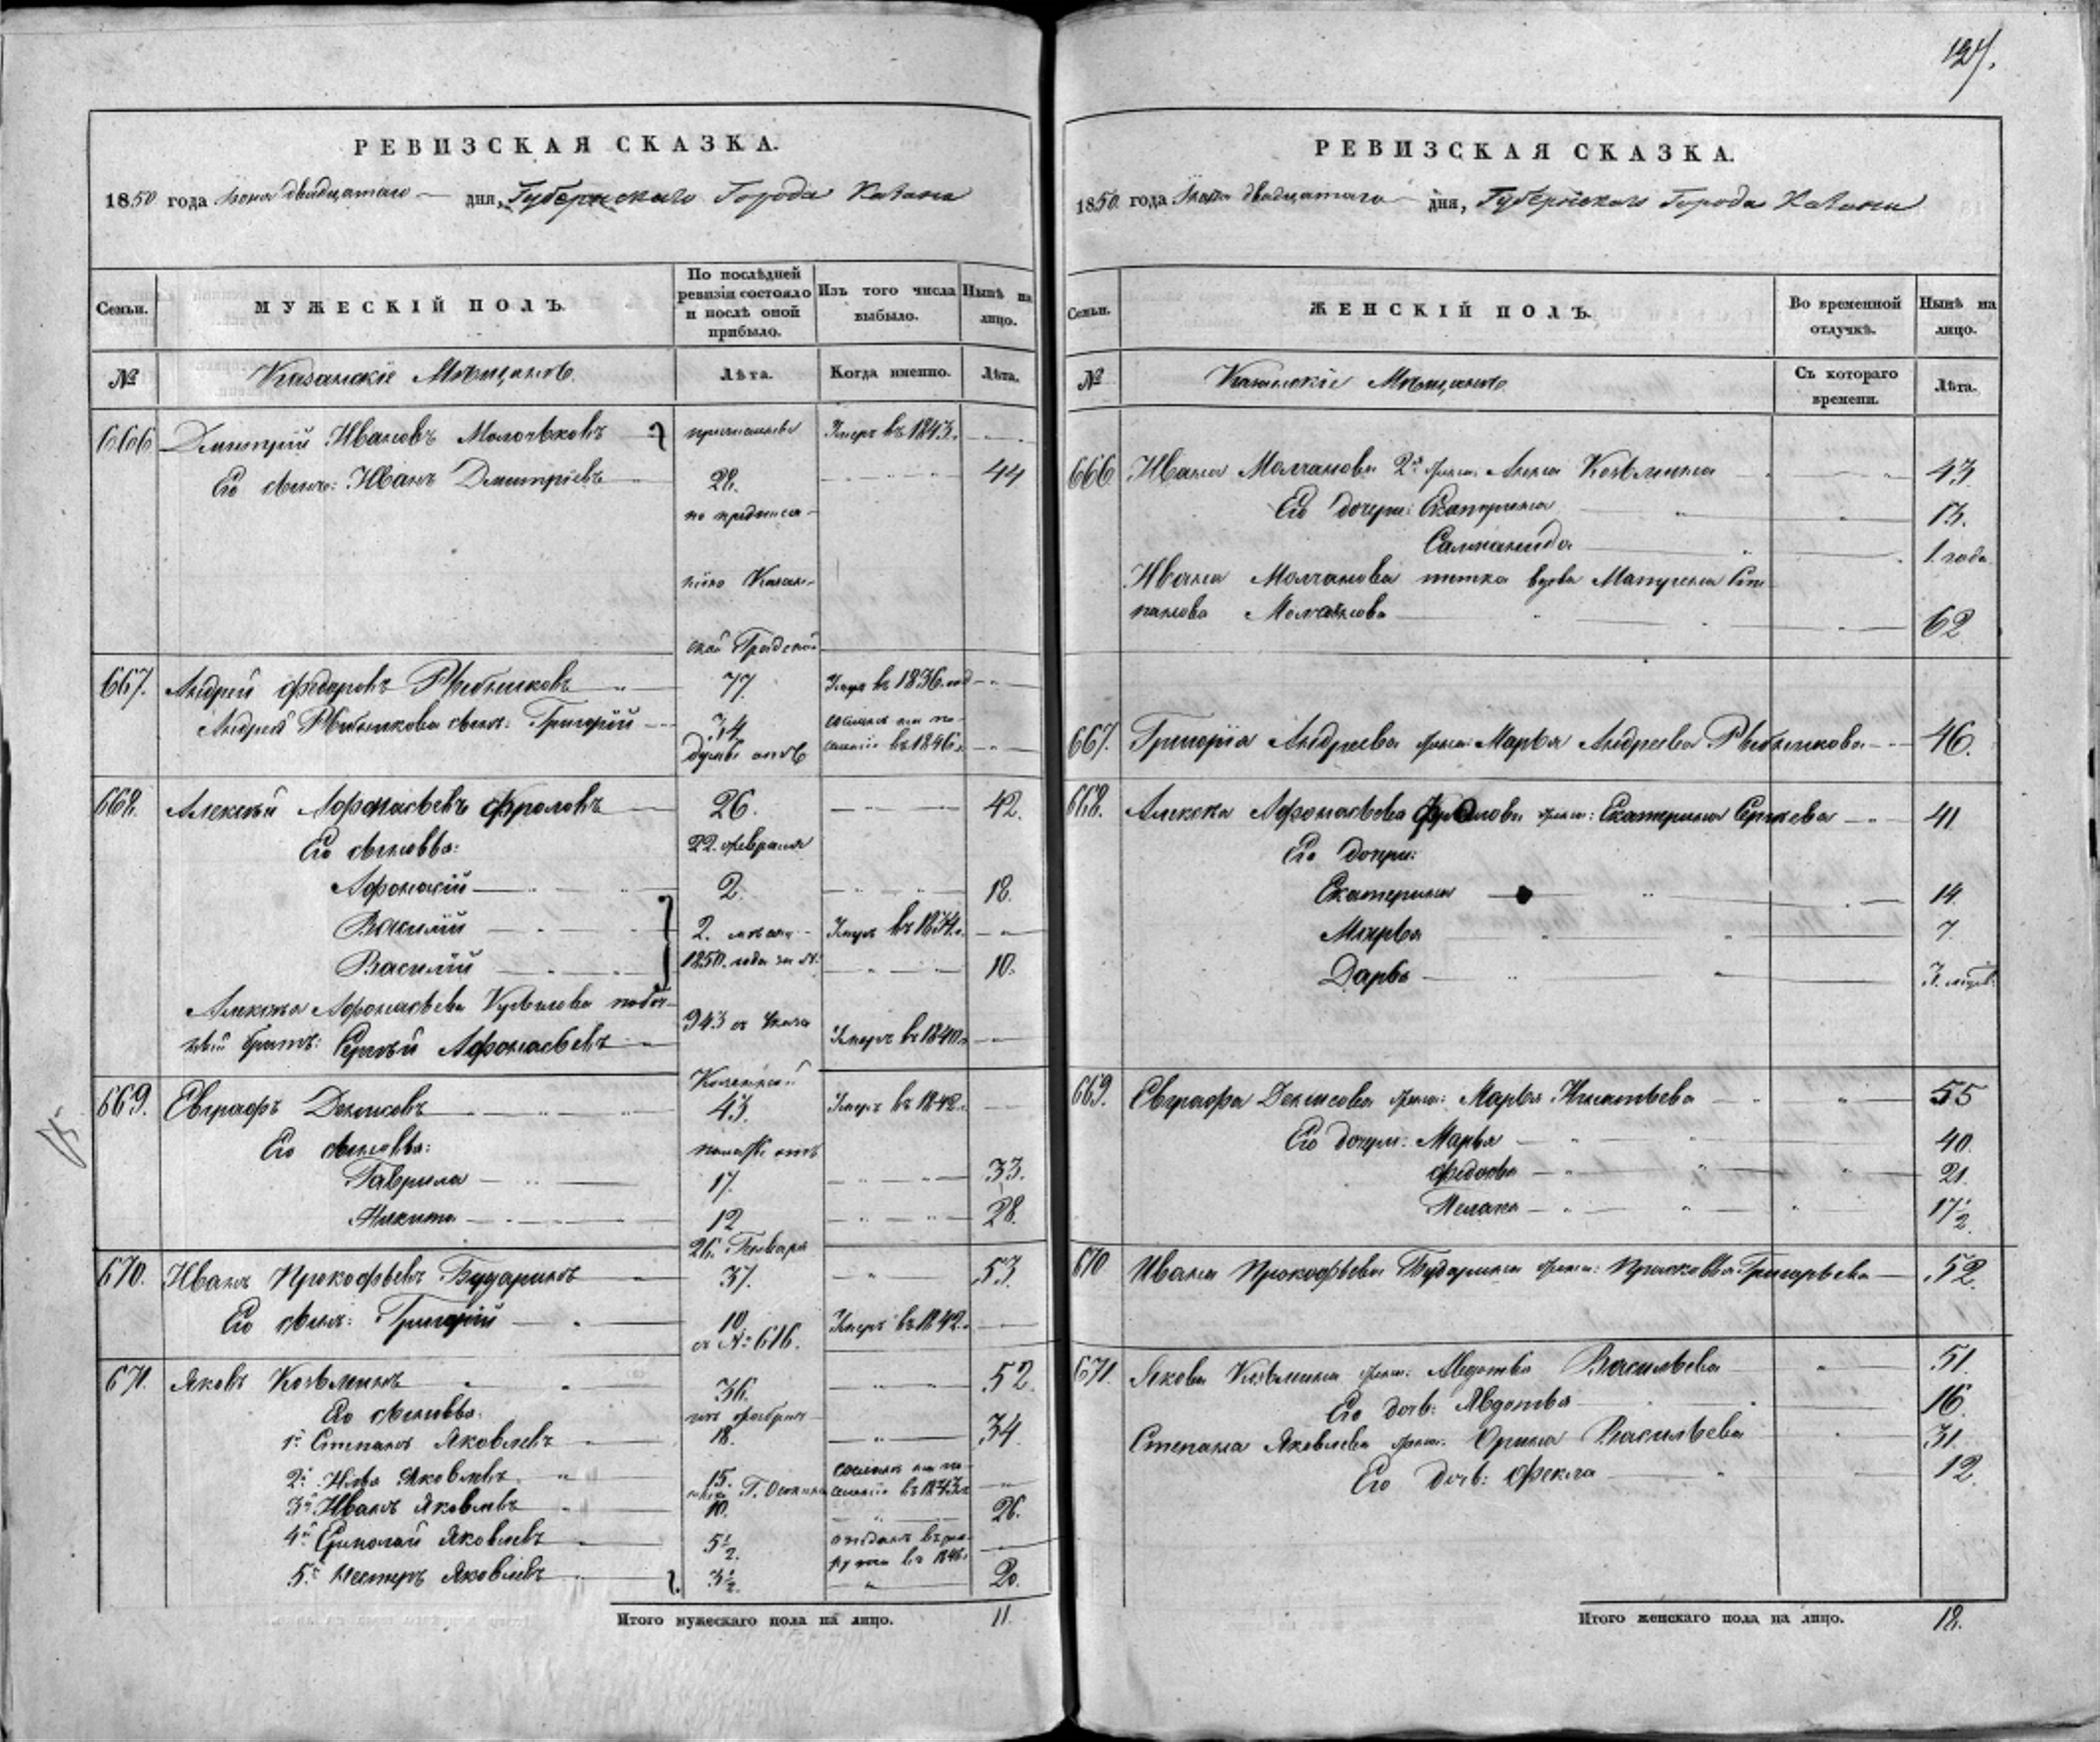 127.
РЕВИЗСКАЯ СКАЗКА.
1850 года двадцатаго дня, Губернскаго Города Казани
Семьи.
МУЖЕСКІЙ ПОЛЪ.
По послѣдней ревизіи состояло и послѣ оной прибыло.
Изъ того числа выбыло.
Нынѣ на лицо.
№
Казанскіе Мѣщане.
Лѣта.
Когда именно.
Лѣта.
666 Дмитрій Ивановъ Умеръ въ 1843.
Его сынъ: Иванъ Дмитріевъ 28. 44
по предписа-
нію Казан-
ской Градской
667. Андрей Федоровъ 77. Умеръ въ 1836. год
Андрея сынъ: Григорій 34 сосланъ на по-
думы отъ селеніе въ 1846.
668. Алексѣй Афонасьевъ Фроловъ 26. 42.
Его сыновья: 22. февраля
Афонасій 2. 18.
Василій 2. мѣсяц. Умеръ въ 1834.
Василій 1850. года за №: 10.
Алексѣя Афонасьева побоч-
ный братъ: Сергѣй Афонасьевъ 943 и Указа Умеръ въ 1840.
Казенной
669. Евграфъ Денисовъ 43. Умеръ въ 1842.
Его сыновья: палаты отъ
Гаврила 17. 33.
Никита 12 28.
26. Генваря
670. Иванъ Прокофьевъ Бударинъ 37. 53.
Его сынъ: Григорій 10. Умеръ въ 1842.
за № 616.
671. Яковъ Козьминъ 36. 52.
Его сыновья:
1й Степанъ Яковлевъ 18. 34.
2й Яковлевъ 15. сосланъ на по-
селеніе въ 1843.
3й Иванъ Яковлевъ 10. 26.
4й Яковлевъ 5 1/2. отданъ въ рек-
руты въ 1846.
5й Нестеръ Яковлевъ 3 1/2. 20.
Итого мужескаго пола на лицо. 11.
РЕВИЗСКАЯ СКАЗКА.
1850 года двадцатаго дня, Губернскаго Города Казани
Семьи.
ЖЕНСКІЙ ПОЛЪ.
Во временной отлучкѣ.
Нынѣ на лицо.
№
Казанскіе Мѣщане
Съ котораго времени.
Лѣта.
666 Ивана Молчанова 2я жена Анна Козьмина 43
Его дочери: Екатерина 13.
1 года
Ивана Молчанова тетка вдова Сте
панова Молчанова 62
667. Григорія Андреева жена: Марья Андреева 46.
668. Алексѣя Афонасьева Фролова жена: Екатерина Сергѣева 41
Его дочери:
Екатерина 14.
Марья 7.
Дарья 3. мѣсяц.
669. Евграфа Денисова жена: Марья Игнатьева 55
Его дочери: Марья 40.
Федосья 21.
17 1/2
670 Ивана Прокофьева Бударина жена: Прасковья Григорьева 52.
671. Якова Козьмина жена: Авдотья Васильева 51.
Его дочь: Авдотья 16.
Степана Яковлева жена: Орина Васильева 31.
Его дочь: Фекла 12.
Итого женскаго пола на лицо. 18.